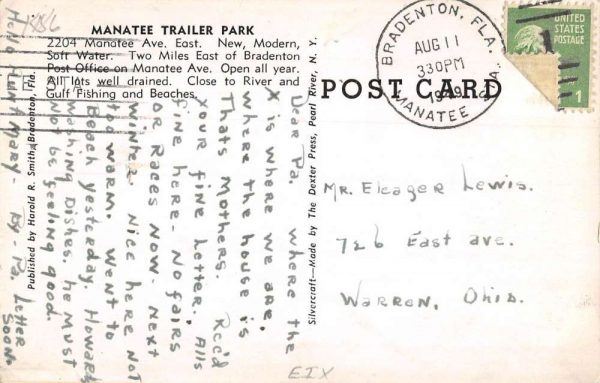 1886
MANATEE TRAILER PARK
2204 Manatee Ave. East. New, Modern,
Soft Water. Two Miles East of Bradenton
Post Office on Manatee Ave. Open all year.
All lots well drained. Close to River and
Gulf Fishing and Beaches.
BRADENTON, FLA.
AUG 11
330 PM
1949
MANATEE
UNITED STATES
POSTAGE
1
POST CARD
Dear Pa. Where the
X is where we are.
Where the house is
Thats Mothers. Rec'd
Your fine letter. Alls
fine here - No fairs
or Races Now. Next
Winter. Nice here not
too warm. Went to
Beach yesterday. Howard
washing Dishes. he Must
Not be feeling good
By - Pa. Letter
Soon.
Published by Harold R. Smith, Bradenton, Fla.
Silvercraft—Made by The Dexter Press, Pearl River, N. Y.
Mr. Eleager Lewis.
726 East ave.
Warren, Ohio.
EIX